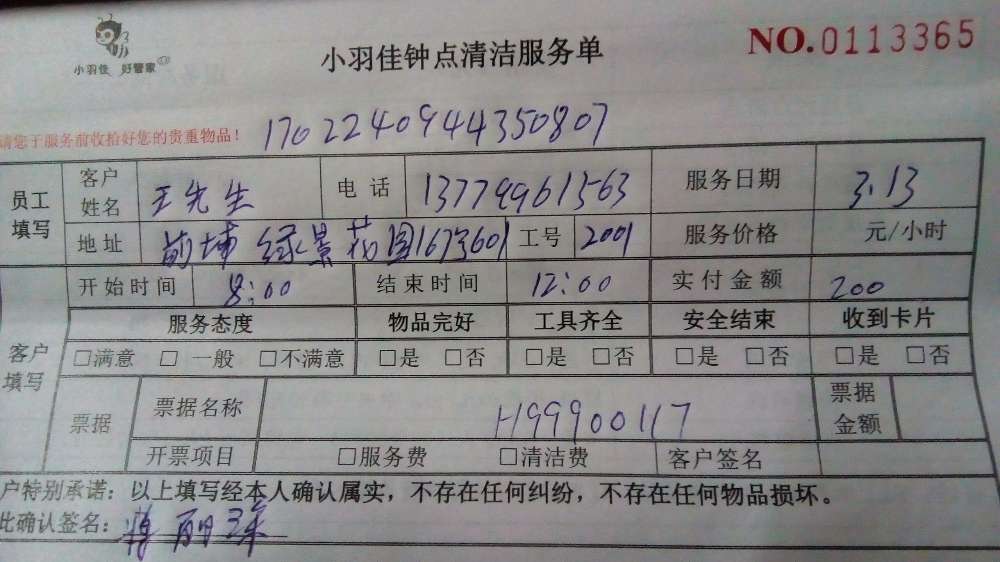 小羽佳 好管家
小羽佳钟点清洁服务单
NO.0113365
请您于服务前收拾好您的贵重物品！ 1702240944350807
员工填写 客户姓名 王先生 电话 13779961563 服务日期 3.13
地址 前埔 绿景花园1673601 工号 2001 服务价格 元/小时
客户填写 开始时间 8:00 结束时间 12:00 实付金额 200
服务态度 物品完好 工具齐全 安全结束 收到卡片
□满意 □一般 □不满意 □是 □否 □是 □否 □是 □否 □是 □否
票据 票据名称 H99900117 票据金额
开票项目 □服务费 □清洁费 客户签名
户特别承诺：以上填写经本人确认属实，不存在任何纠纷，不存在任何物品损坏。
此确认签名：